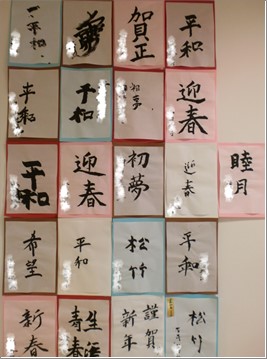 平和
賀正
平和
平和
平和
初夢
迎春
平和
迎春
初夢
迎春
睦月
希望
平和
松竹
平和
新春
生活
寿春
謹賀
新年
松竹